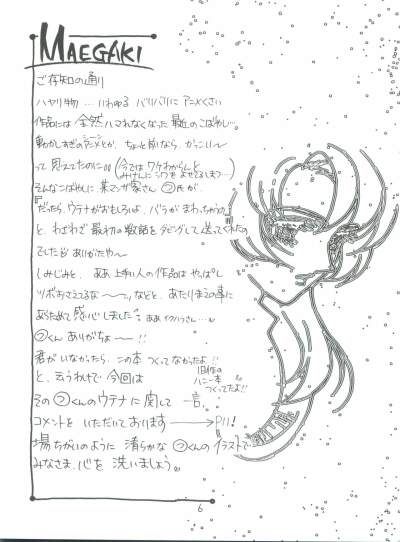 MAEGAKI
ご存知の通り
ハヤリ物…いわゆる バリバリに アニメくさい
作品には全然ハマれなくなった最近のこばやし…
動かしすぎのアニメとか、ちょっと前なら、かっこいー
シーン
って 思えてたのに。。(今ではワケわからんと
みけんにシワをよせてしまう…)
そんなこばやしに 某マンガ家さん つ氏が、
『だったら、ウテナがおもしろいよ、バラがまわっちゃうの』
と、わざわざ 最初の数話をダビングして送ってくれたの
でした ありがたや〜
しみじみと、ああ 上手い人の作品は やっぱし
ツボおさえてるな〜〜、などと、あたりまえの事に
あらためて感心しました ああ イクハラさん…
つくん ありがちょ〜!!
君がいなかったら、この本 つくってなかったよ!!
と、云うわけで 今回は
旧作のハニー本
つくってたよ!!
その つくんのウテナに関して 一言、
コメントを いただいております→P11!
場ちがいのように 清らかな つくんの イラストで
みなさま、心を 洗いましょう。
6